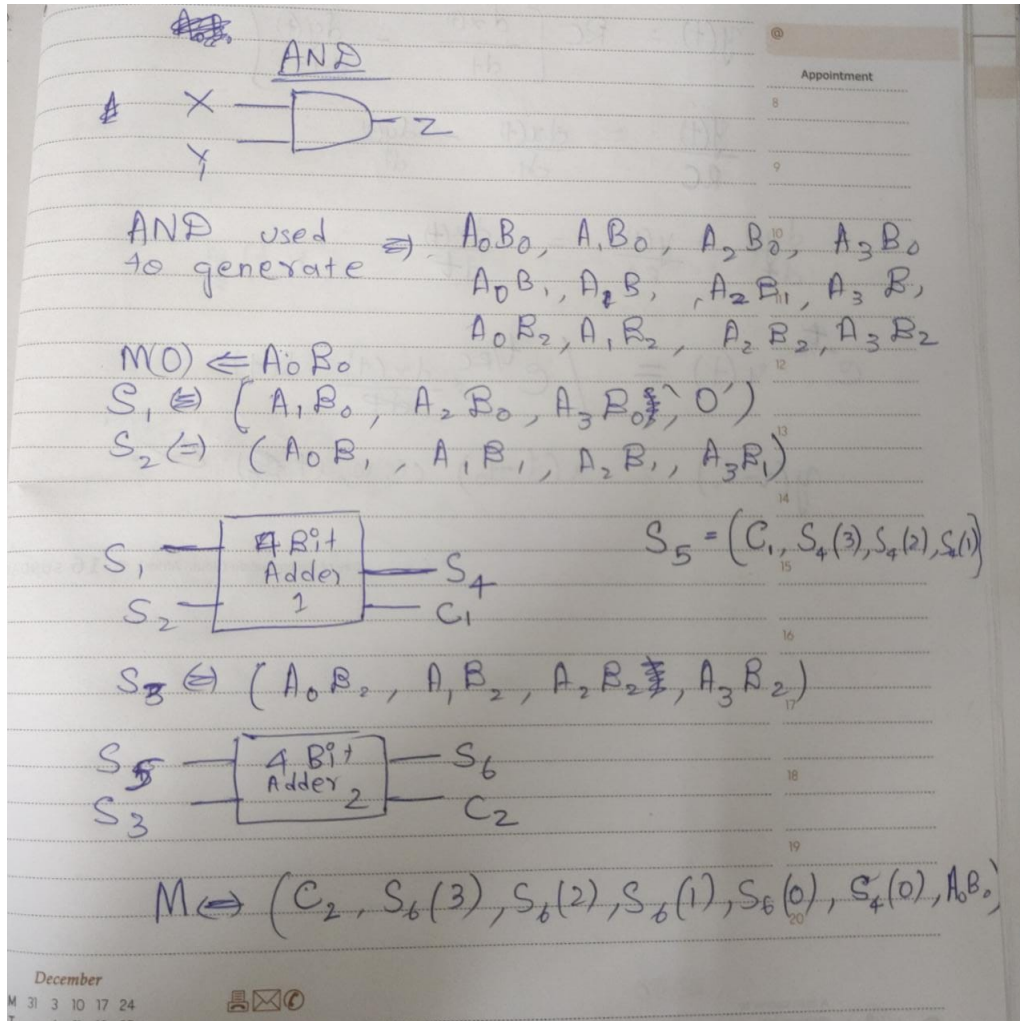 AND
Appointment
X
Z
Y
8
9
10
12
13
14
15
16
17
18
19
20
AND used to generate ⇒ A₀B₀, A₁B₀, A₂B₀, A₃B₀
A₀B₁, A₁B₁, A₂B₁, A₃B₁
A₀B₂, A₁B₂, A₂B₂, A₃B₂
M(0) ⇐ A₀B₀
S₁ ⇔ (A₁B₀, A₂B₀, A₃B₀, '0')
S₂ ⇔ (A₀B₁, A₁B₁, A₂B₁, A₃B₁)
S₁ 4 Bit Adder 1 S₄
S₂ C₁
S₅ = (C₁, S₄(3), S₄(2), S₄(1))
S₃ ⇔ (A₀B₂, A₁B₂, A₂B₂, A₃B₂)
S₅ 4 Bit Adder 2 S₆
S₃ C₂
M ⇔ (C₂, S₆(3), S₆(2), S₆(1), S₆(0), S₄(0), A₀B₀)
December
M 31 3 10 17 24